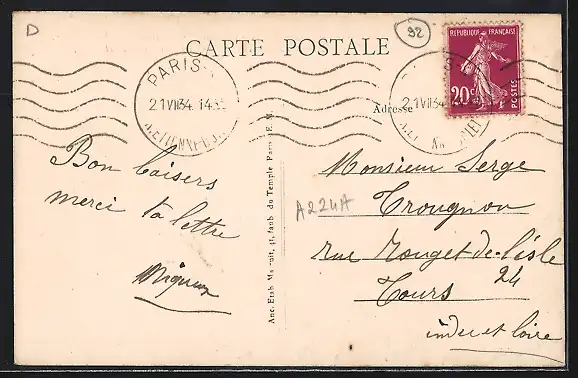 D
92
CARTE POSTALE
RÉPUBLIQUE FRANÇAISE
20c
POSTES
PARIS
21 VII 34 14
21 VII 34
Adresse
Bon baisers
merci ta lettre
Monsieur Serge
Trougnou
rue Rouget de l'isle
24
Tours
indre et loire
A224A
Anc. Etab. faub. du Temple Paris